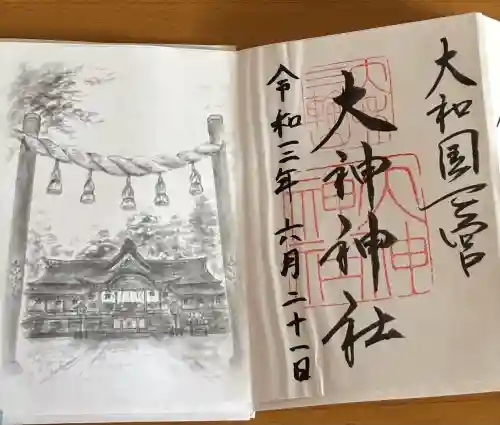 大和国一宮
大神神社
令和三年六月二十一日